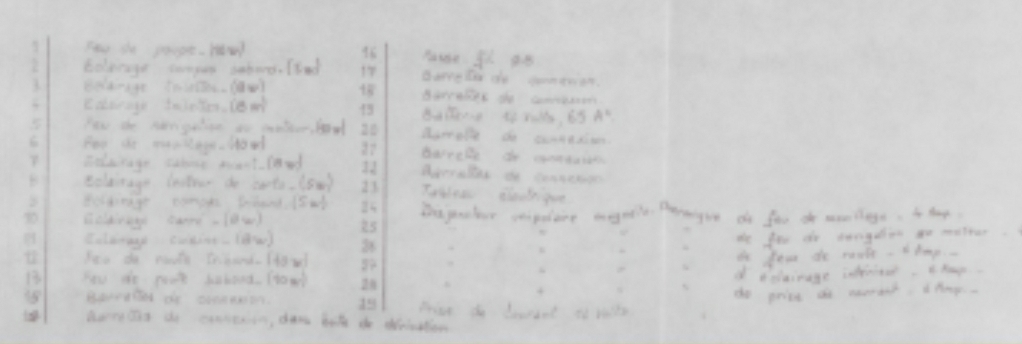 1 Feu de poupe _ (10w)
2 Eclairage compas babord _ (5w)
3 Eclairage toilettes _ (8w)
4 Eclairage toilettes _ (8w)
5 Feu de navigation au moteur _ (10w)
6 Feu de mouillage _ (10w)
7 Eclairage cabine avant _ (8w)
8 Eclairage lecteur de carte _ (5w)
9 Eclairage compas tribord _ (5w)
10 Eclairage carré _ (8w)
11 Eclairage cuisine _ (8w)
12 Feu de route tribord _ (10w)
13 Feu de route babord _ (10w)
Barrettes de connexion
Barrettes de connexion, dans boite de dérivation
16 Passe fil
17 Barrettes de connexion
18 Barrettes de connexion
19 Batterie 12 volts, 65 A
20 Barrette de connexion
21 Barrette de connexion
22 Barrettes de connexion
23 Tableau électrique
24 Disjoncteur unipolaire magnéto-thermique de feu de mouillage _ Amp _
25 " " " " de feu de navigation au moteur _
26 " " " " de feux de route _ 6 Amp _
27 " " " " d'éclairage intérieur _ 6 Amp _
28 " " " " de prise de courant _ 6 Amp _
29 Prise de courant 12 volts